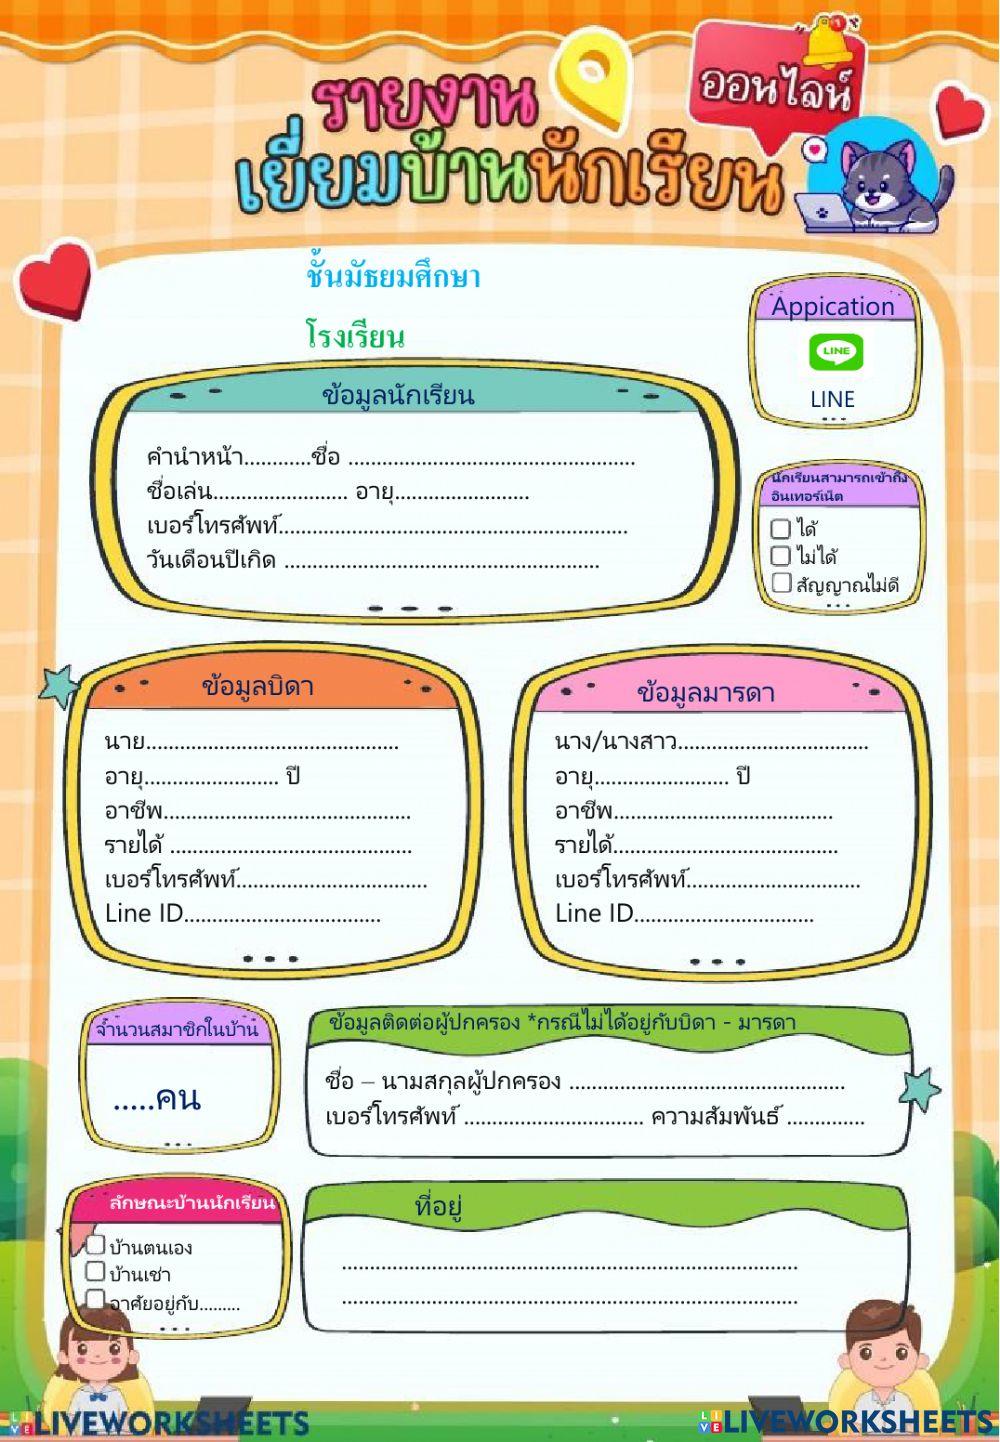 รายงาน
ออนไลน์
เยี่ยมบ้านนักเรียน
ชั้นมัธยมศึกษา
โรงเรียน
Appication
LINE
LINE
ข้อมูลนักเรียน
คำนำหน้า............ชื่อ ...................................................
ชื่อเล่น........................ อายุ........................
เบอร์โทรศัพท์..............................................................
วันเดือนปีเกิด ........................................................
นักเรียนสามารถเข้าถึง
อินเทอร์เน็ต
ได้
ไม่ได้
สัญญาณไม่ดี
ข้อมูลบิดา
นาย.............................................
อายุ........................ ปี
อาชีพ............................................
รายได้ ...........................................
เบอร์โทรศัพท์..................................
Line ID...................................
ข้อมูลมารดา
นาง/นางสาว..................................
อายุ........................ ปี
อาชีพ.......................................
รายได้........................................
เบอร์โทรศัพท์...............................
Line ID................................
จำนวนสมาชิกในบ้าน
.....คน
ข้อมูลติดต่อผู้ปกครอง *กรณีไม่ได้อยู่กับบิดา - มารดา
ชื่อ – นามสกุลผู้ปกครอง .................................................
เบอร์โทรศัพท์ ................................ ความสัมพันธ์ ..............
ลักษณะบ้านนักเรียน
บ้านตนเอง
บ้านเช่า
อาศัยอยู่กับ.........
ที่อยู่
.................................................................................
.................................................................................
LIVEWORKSHEETS
LIVEWORKSHEETS